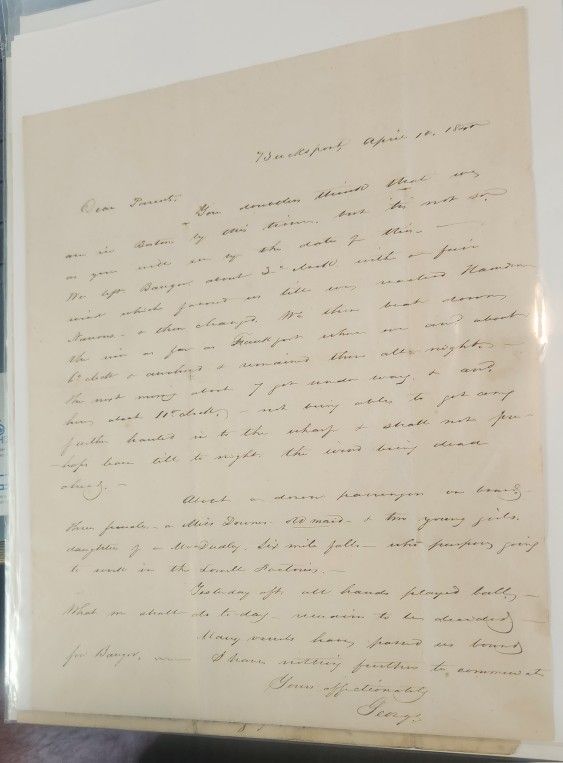 Bucksport, April 10, 1840
Dear Parents,
You doubtless think that we
are in Boston by this time, but tis not so,
as you will see by the date of this. —
We left Bangor about 3 o'clock with a fair
wind which favored us till we reached Hamden
Narrows & then changed. We then beat down
the river as far as Frankfort where we arrd about
6 o'clock & anchored & remained there all night —
The next morning about 7 got under way & arrd
here about 11 o'clock, — not being able to get any
further hauled in to the wharf & shall not per-
-haps leave till to night, the wind being dead
ahead, —
About a dozen passengers on board,
three females — a Miss Downes old maid — & two young girls,
daughters of a Mr Dudley, Six mile falls — who purpose going
to work in the Lowell Factories. —
Yesterday aft. all hands played ball, —
What we shall do to-day — remains to be decided —
Many vessels have passed us bound
for Bangor, — I have nothing further to communicate
Yours affectionately
George